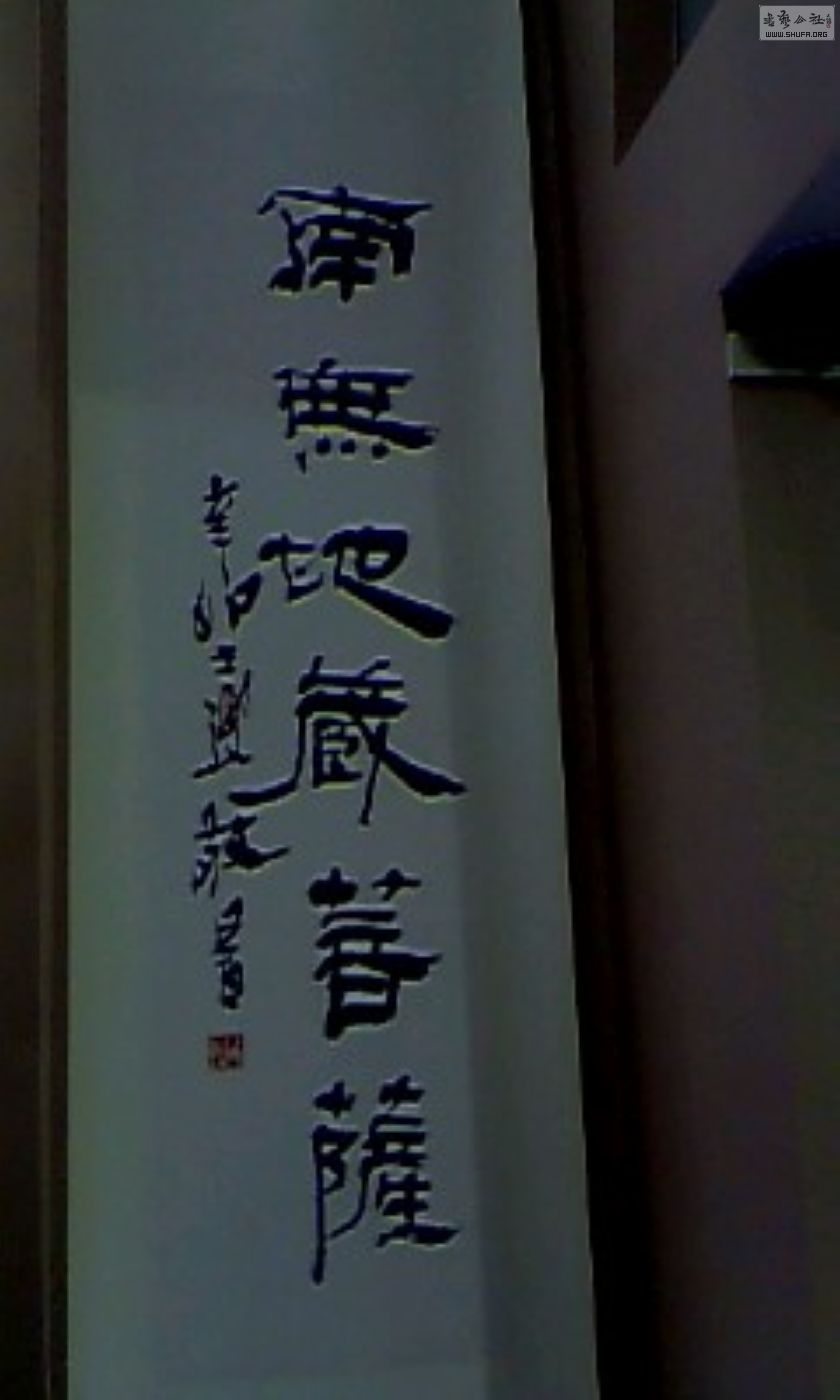 南無地藏菩薩
辛卯
書
书艺公社
WWW.SHUFA.ORG